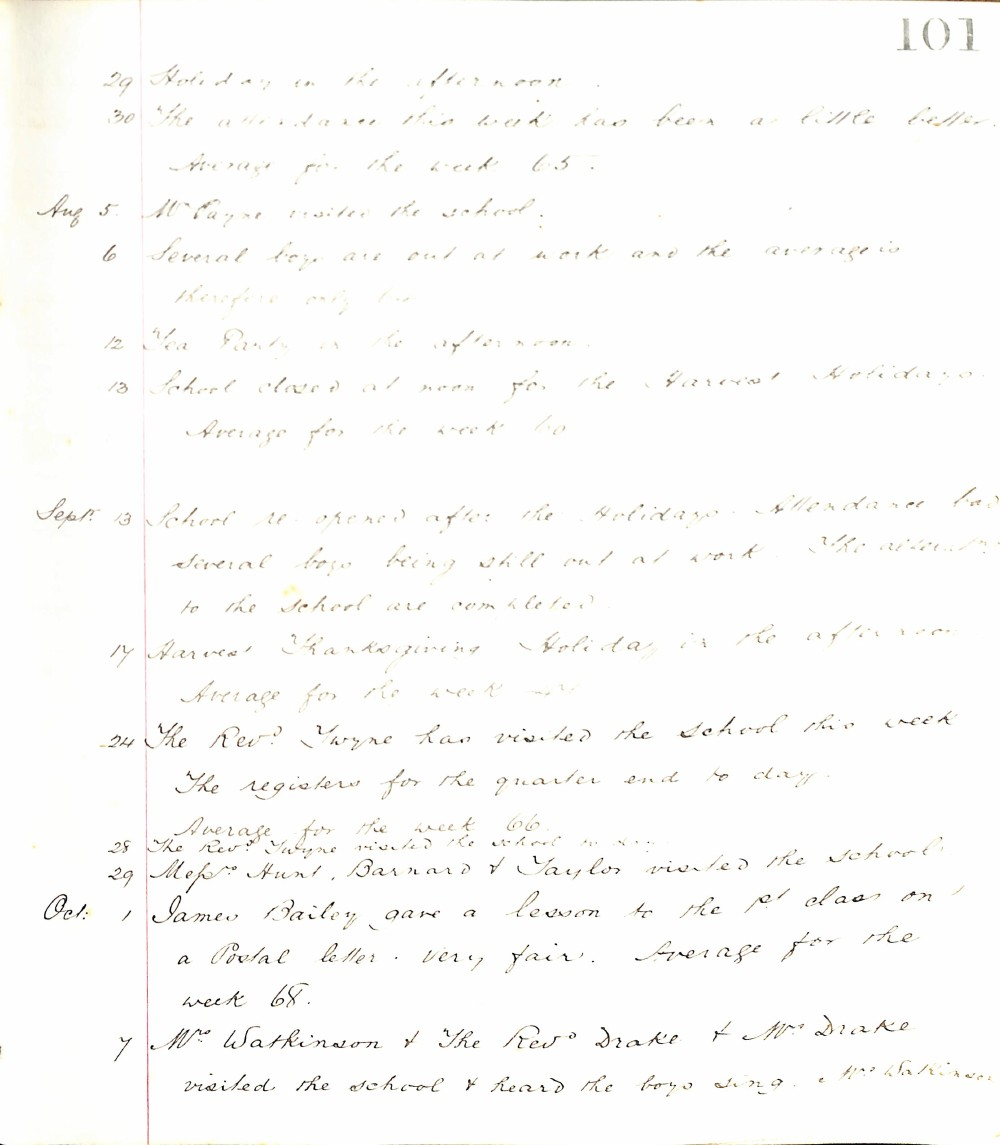 101
29 Holiday in the afternoon.
30 The attendance this week has been a little better.
Average for the week 65.
Aug 5. Mr Payne visited the school.
6 Several boys are out at work and the average is
therefore only
12 Tea Party in the afternoon.
13 School closed at noon for the Harvest Holidays.
Average for the week 60
Sept. 13 School re opened after the Holidays. Attendance bad
several boys being still out at work. The
to the school are completed.
17 Harvest Thanksgiving Holiday in the afternoon
Average for the week
24 The Revd. Twyne has visited the school this week
The registers for the quarter end to day.
Average for the week 66.
28 The Revd. Twyne visited the school to day.
29 Messrs Hunt, Barnard & Taylor visited the school
Oct. 1 James Bailey gave a lesson to the 1st class on
a Postal letter. Very fair. Average for the
week 68.
7 Mrs Watkinson & The Revd Drake & Mrs Drake
visited the school & heard the boys sing. Mrs Watkinson